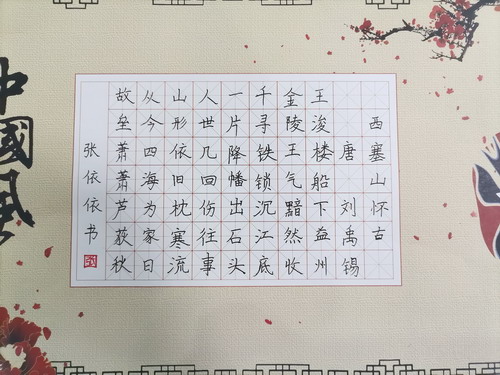 西塞山怀古
唐 刘禹锡
王浚楼船下益州
金陵王气黯然收
千寻铁锁沉江底
一片降幡出石头
人世几回伤往事
山形依旧枕寒流
从今四海为家日
故垒萧萧芦荻秋
张依依书
中國風